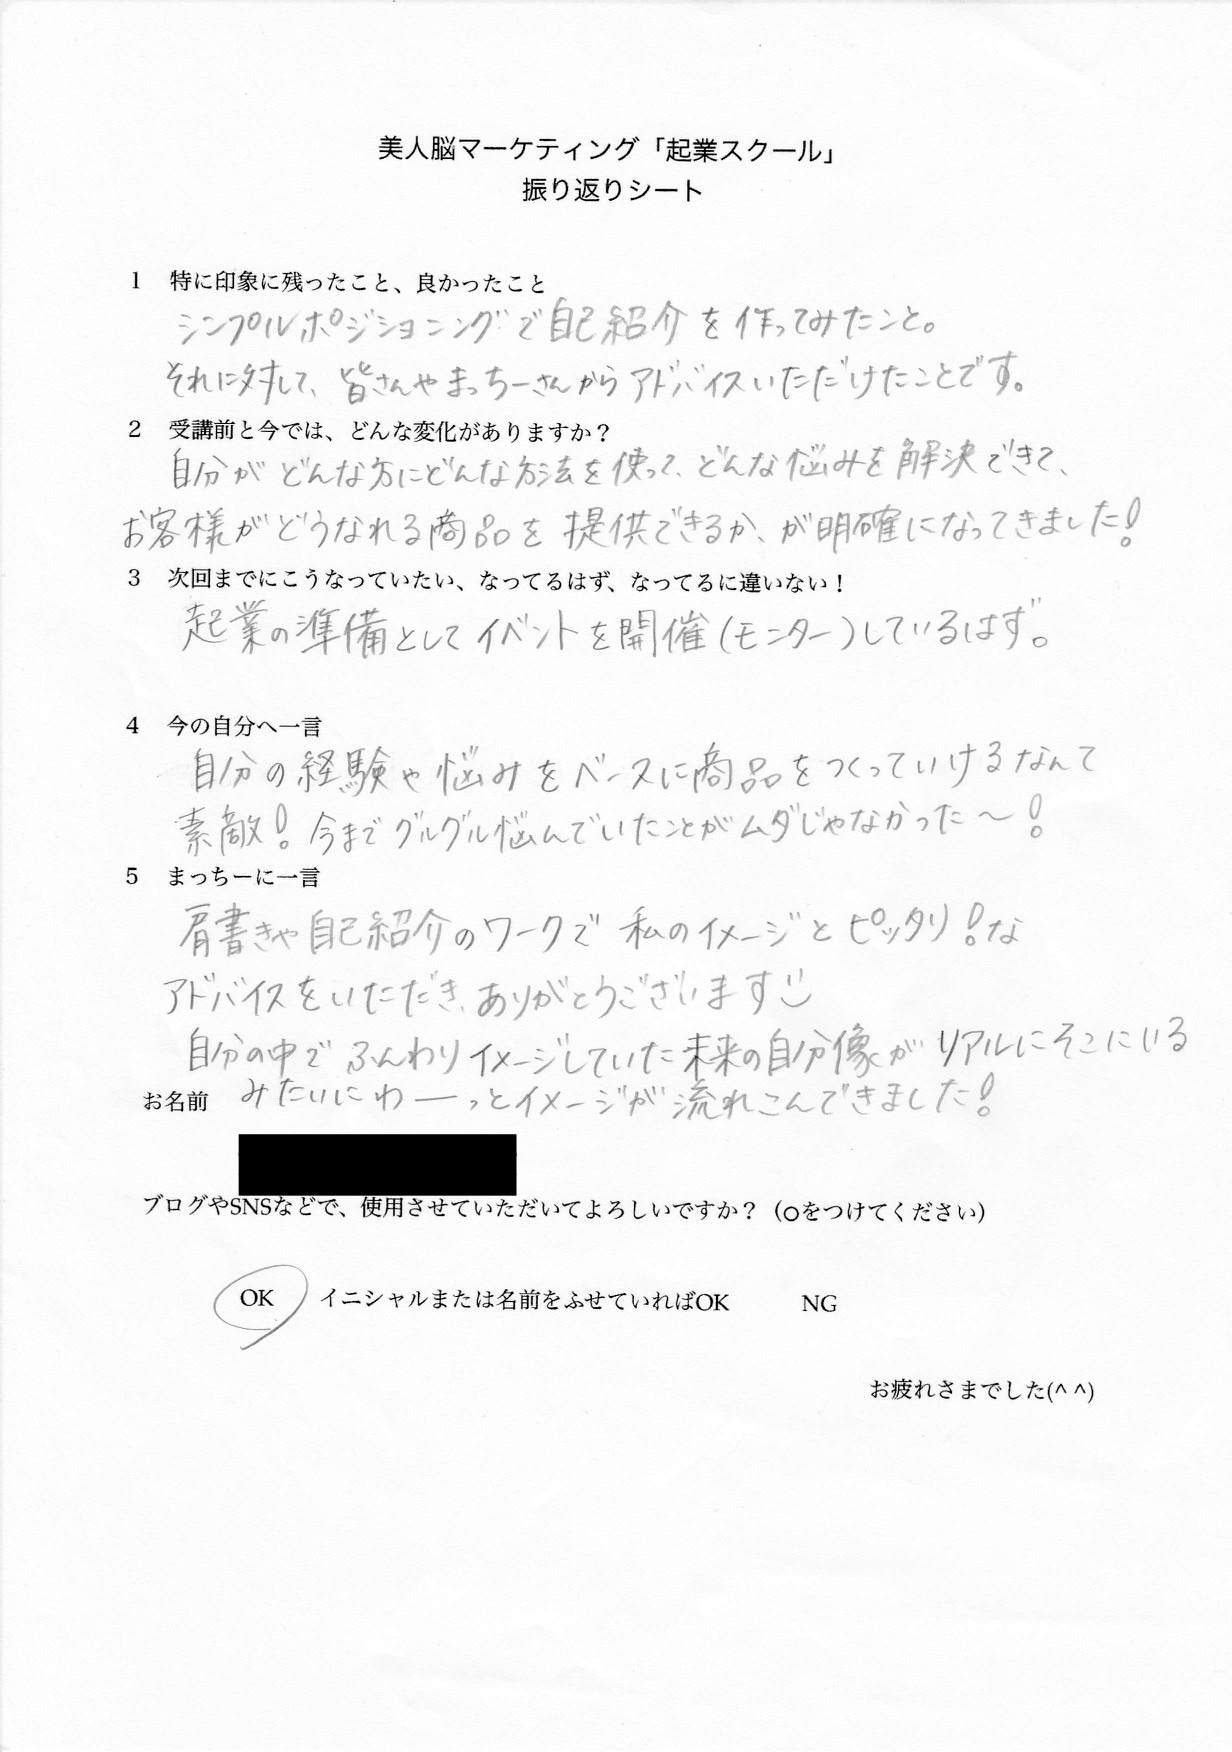 美人脳マーケティング「起業スクール」
振り返りシート
1 特に印象に残ったこと、良かったこと
シンプルポジショニングで自己紹介を作ってみたこと。
それに対して、皆さんやまっちーさんからアドバイスいただけたことです。
2 受講前と今では、どんな変化がありますか？
自分がどんな方にどんな方法を使って、どんな悩みを解決できて、
お客様がどうなれる商品を提供できるか、が明確になってきました！
3 次回までにこうなっていたい、なってるはず、なってるに違いない！
起業の準備としてイベントを開催(モニター)しているはず。
4 今の自分へ一言
自分の経験や悩みをベースに商品をつくっていけるなんて
素敵！今までグルグル悩んでいたことがムダじゃなかった〜！
5 まっちーに一言
肩書きや自己紹介のワークで私のイメージとピッタリ！な
アドバイスをいただき、ありがとうございます
自分の中でふんわりイメージしていた未来の自分像がリアルにそこにいる
みたいにわーっとイメージが流れこんできました！
お名前
ブログやSNSなどで、使用させていただいてよろしいですか？（○をつけてください）
OK イニシャルまたは名前をふせていればOK NG
お疲れさまでした(^ ^)